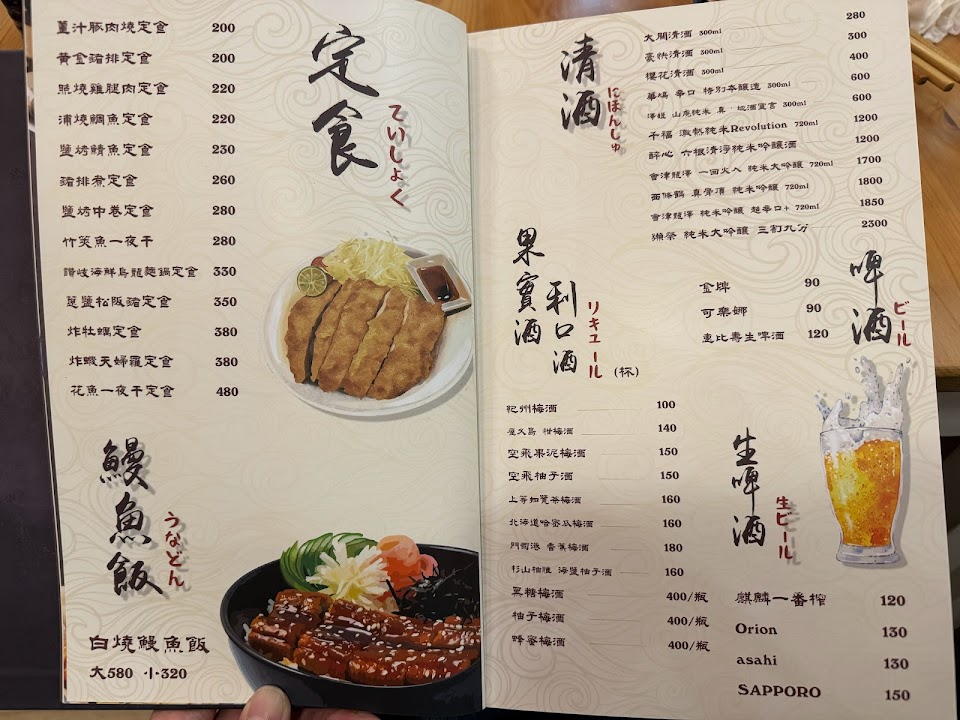 定食
ていしょく
薑汁豚肉燒定食 200
黄金豬排定食 200
照燒雞腿肉定食 220
浦燒鯛魚定食 220
鹽烤鯖魚定食 230
豬排煮定食 260
鹽烤中卷定食 280
竹筴魚一夜干 280
讚岐海鮮烏龍麵鍋定食 330
蔥鹽松阪豬定食 350
炸牡蠣定食 380
炸蝦天婦羅定食 380
花魚一夜干定食 480
鰻魚飯
うなどん
白燒鰻魚飯
大580 小320
清酒
にほんしゅ
大關清酒 300ml 280
豪快清酒 300ml 300
櫻花清酒 300ml 400
辛口 特別本釀造 300ml 600
山廃純米 真 地酒宣言 300ml 600
千福 激熱純米Revolution 720ml 1200
醉心 六根清淨純米吟釀酒 1200
會津龍澤 一回火入 純米大吟釀 720ml 1700
西條鶴 真骨頂 純米吟釀 720ml 1800
會津龍澤 純米吟釀 超辛口+ 720ml 1850
獺祭 純米大吟釀 三割九分 2300
果實酒
利口酒
リキュール
(杯)
紀州梅酒 100
屋久島 柑梅酒 140
空飛果泥梅酒 150
空飛柚子酒 150
上等如覽茶梅酒 160
北海道哈密瓜梅酒 160
門司港 香蕉梅酒 180
杉山柚雅 海鹽柚子酒 160
黑糖梅酒 400/瓶
柚子梅酒 400/瓶
蜂蜜梅酒 400/瓶
啤酒
ビール
金牌 90
可樂娜 90
惠比壽生啤酒 120
生啤酒
生ビール
麒麟一番搾 120
Orion 130
asahi 130
SAPPORO 150